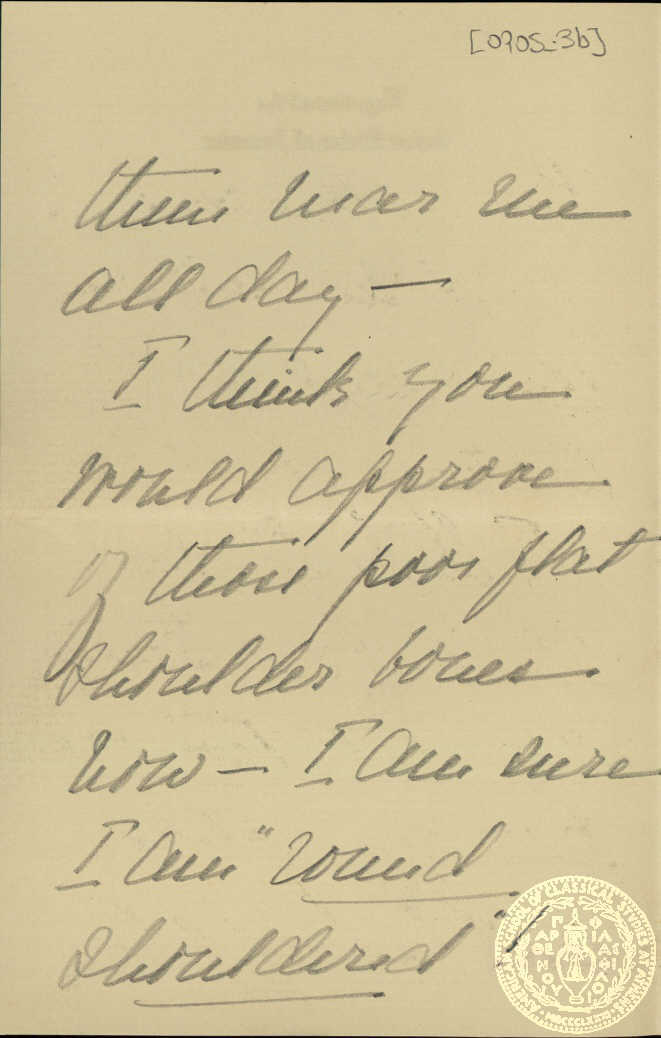 [0905-3b]
them near me
all day —
I think you
would approve
of those poor flat
shoulder bones
now — I am sure
I am "round
shouldered"!
AMERICAN SCHOOL OF CLASSICAL STUDIES AT ATHENS
MDCCCLXXXI